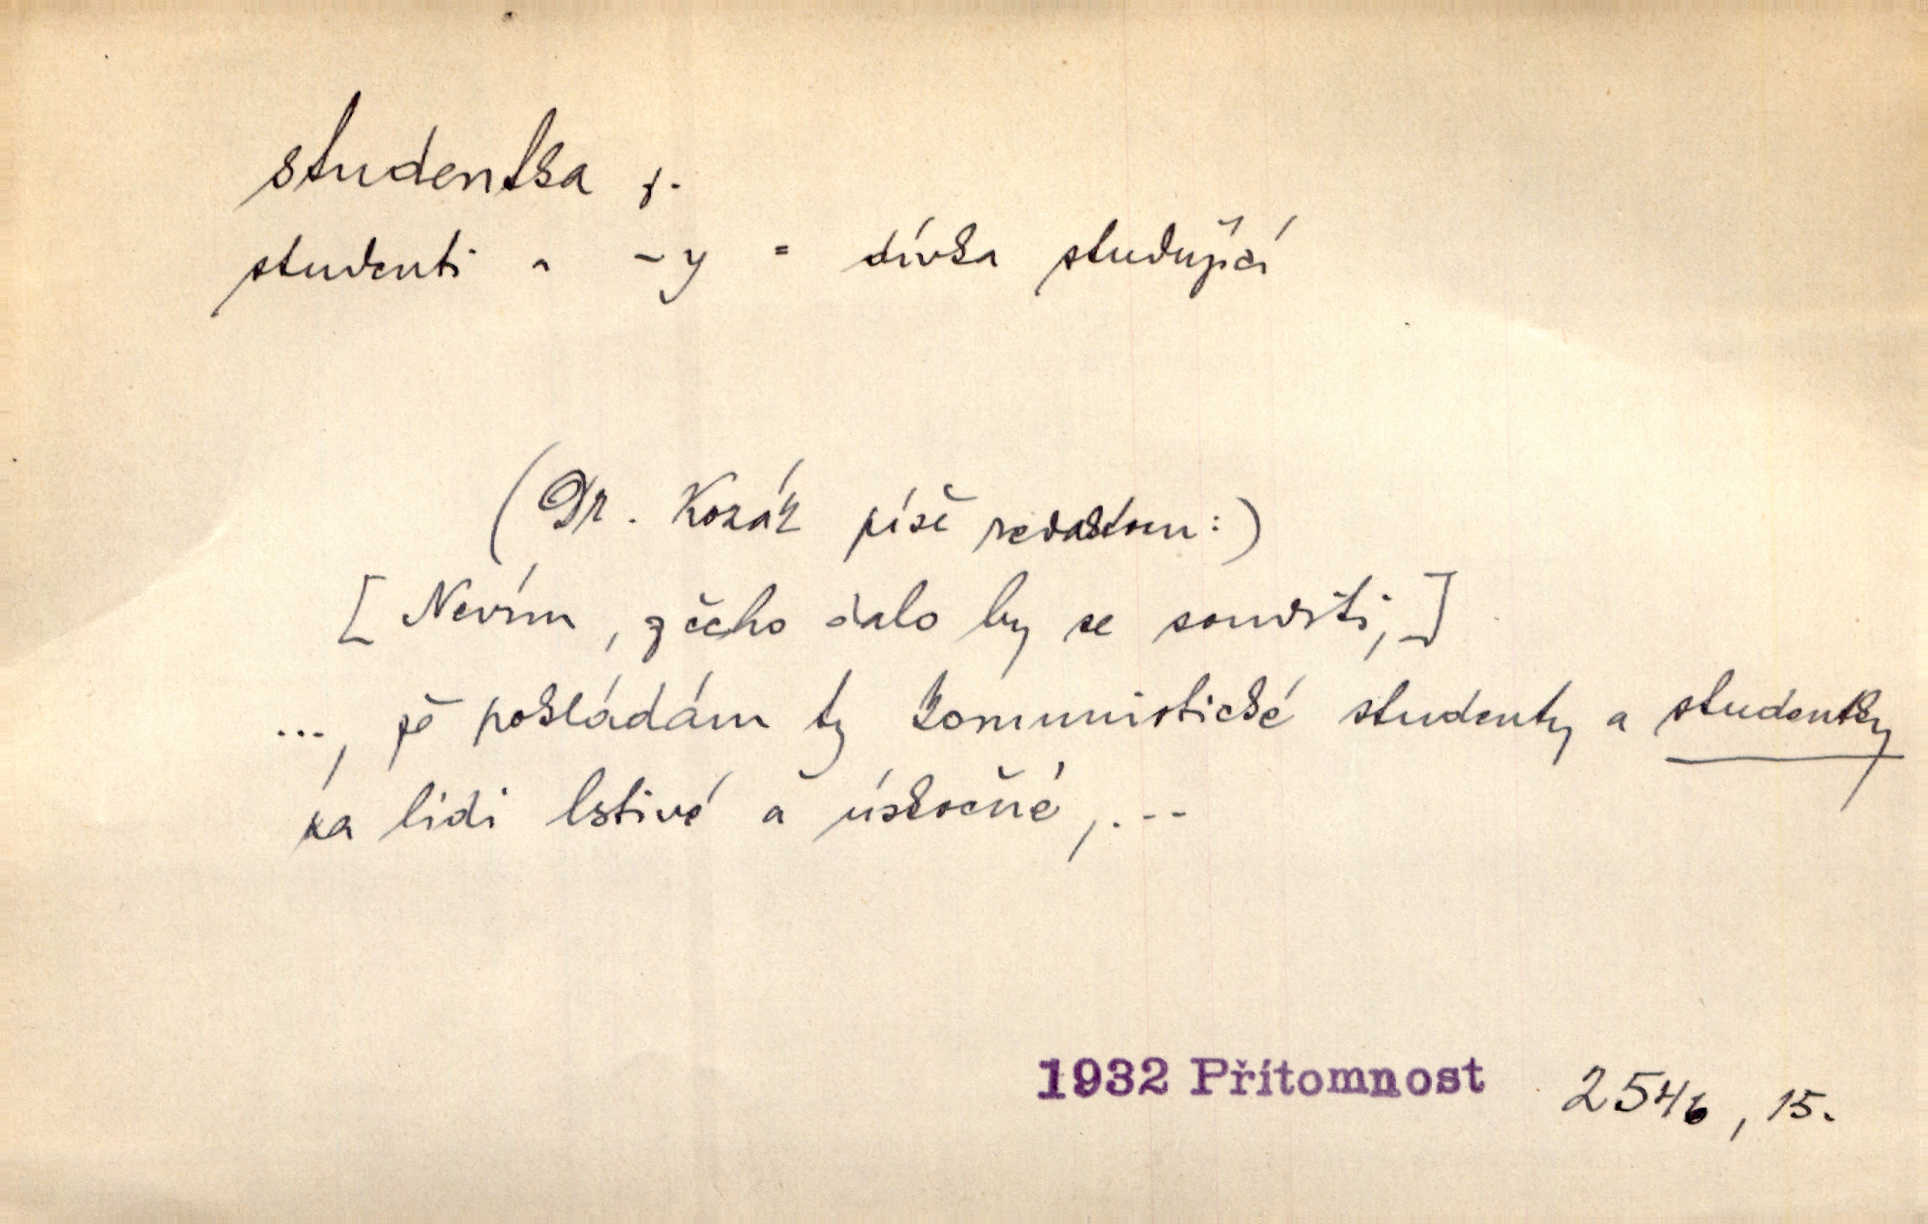 studentka f.
studenti a -y = dívka studující
(Dr. Kozák píše redaktoru:)
[Nevím, z čeho dalo by se souditi,]
..., že pokládám ty komunistické studenty a studentky
za lidi lstivé a úskočné,...
1932 Přítomnost 254b, 15.